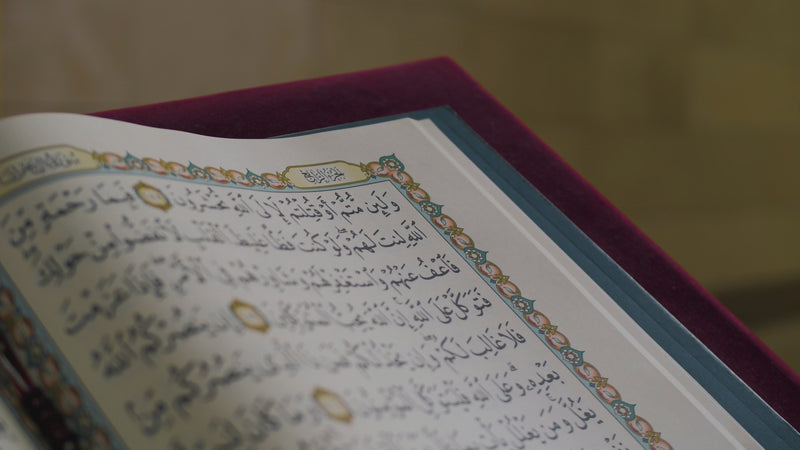 الجزء الرابع
وَلَئِن مُّتُّمْ أَوْ قُتِلْتُمْ لَإِلَى ٱللَّهِ تُحْشَرُونَ فَبِمَا رَحْمَةٍ مِّنَ
ٱللَّهِ لِنتَ لَهُمْ وَلَوْ كُنتَ فَظًّا غَلِيظَ ٱلْقَلْبِ لَٱنفَضُّوا۟ مِنْ حَوْلِكَ
فَٱعْفُ عَنْهُمْ وَٱسْتَغْفِرْ لَهُمْ وَشَاوِرْهُمْ فِى ٱلْأَمْرِ فَإِذَا عَزَمْتَ
فَتَوَكَّلْ عَلَى ٱللَّهِ إِنَّ ٱللَّهَ يُحِبُّ ٱلْمُتَوَكِّلِينَ إِن يَنصُرْكُمُ ٱللَّهُ
فَلَا غَالِبَ لَكُمْ وَإِن يَخْذُلْكُمْ يَنصُرُكُم مِّنۢ
بَعْدِهِۦ وَعَلَى ٱللَّهِ فَلْيَتَوَكَّلِ ٱلْمُؤْمِنُونَ وَمَا كَانَ
يَغُلَّ وَمَن يَغْلُلْ يَأْتِ